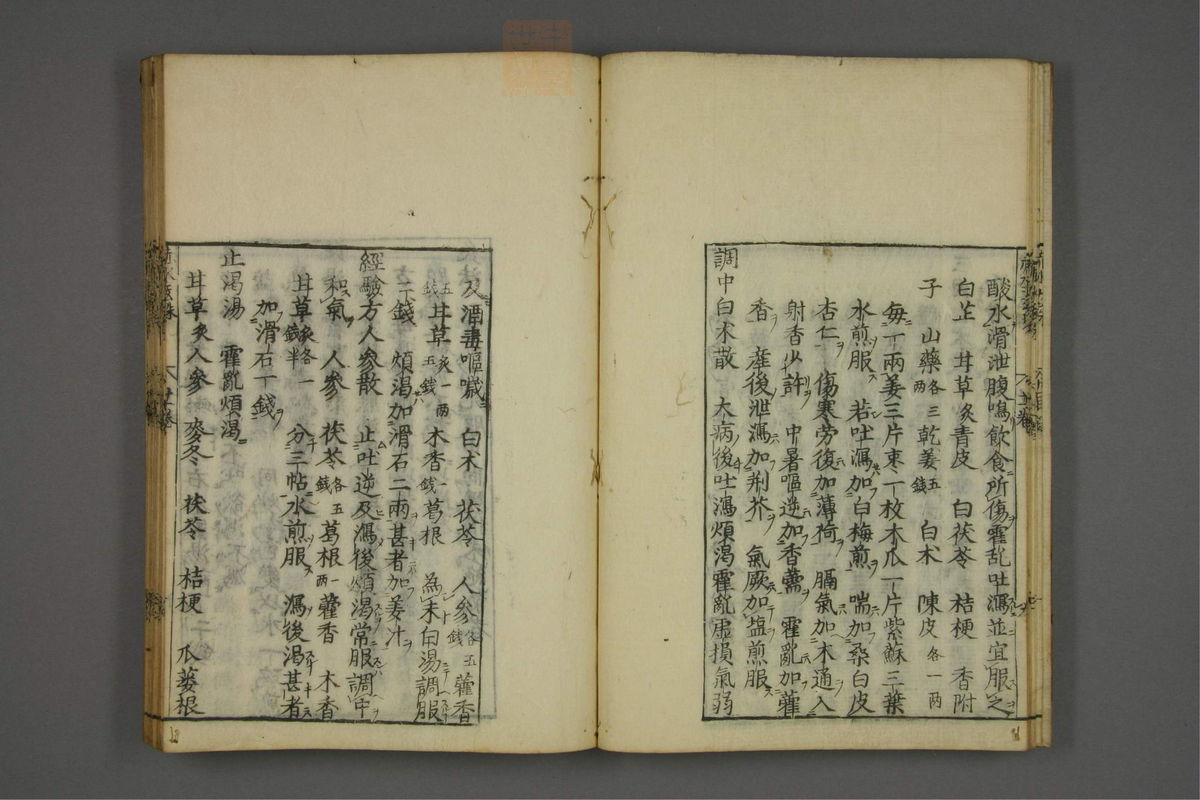 酸水滑泄腹鳴飲食所傷霍乱吐瀉並宜服之
白芷 甘草炙青皮 白茯苓 桔梗 香附
子 山藥各三兩乾姜五錢 白术 陳皮各一兩
毎一兩姜三片枣一枚木瓜一片紫蘇三葉
水煎服 若吐瀉加白梅煎 喘加桑白皮
杏仁 傷寒劳復加薄荷 膈氣加木通入
射香少許 中暑嘔逆加香薷 霍亂加藿
香 産後泄瀉加荆芥 氣厥加塩煎服
調中白术散 大病後吐瀉煩渴霍亂虚損氣弱
及酒毒嘔噦 白术 茯苓 人參各五錢藿香
五錢甘草炙一兩五錢木香一錢葛根 為末白湯調服
二錢 煩渴加滑石二兩甚者加姜汁
經驗方人參散 止吐逆及瀉後煩渴常服調中
和氣 人參 茯苓各五錢葛根一兩藿香 木香
甘草炙各一錢半 分三帖水煎服 瀉後渴甚者
加滑石一錢
止渴湯 霍亂煩渴
甘草炙人參 麥冬 茯苓 桔梗 瓜蒌根